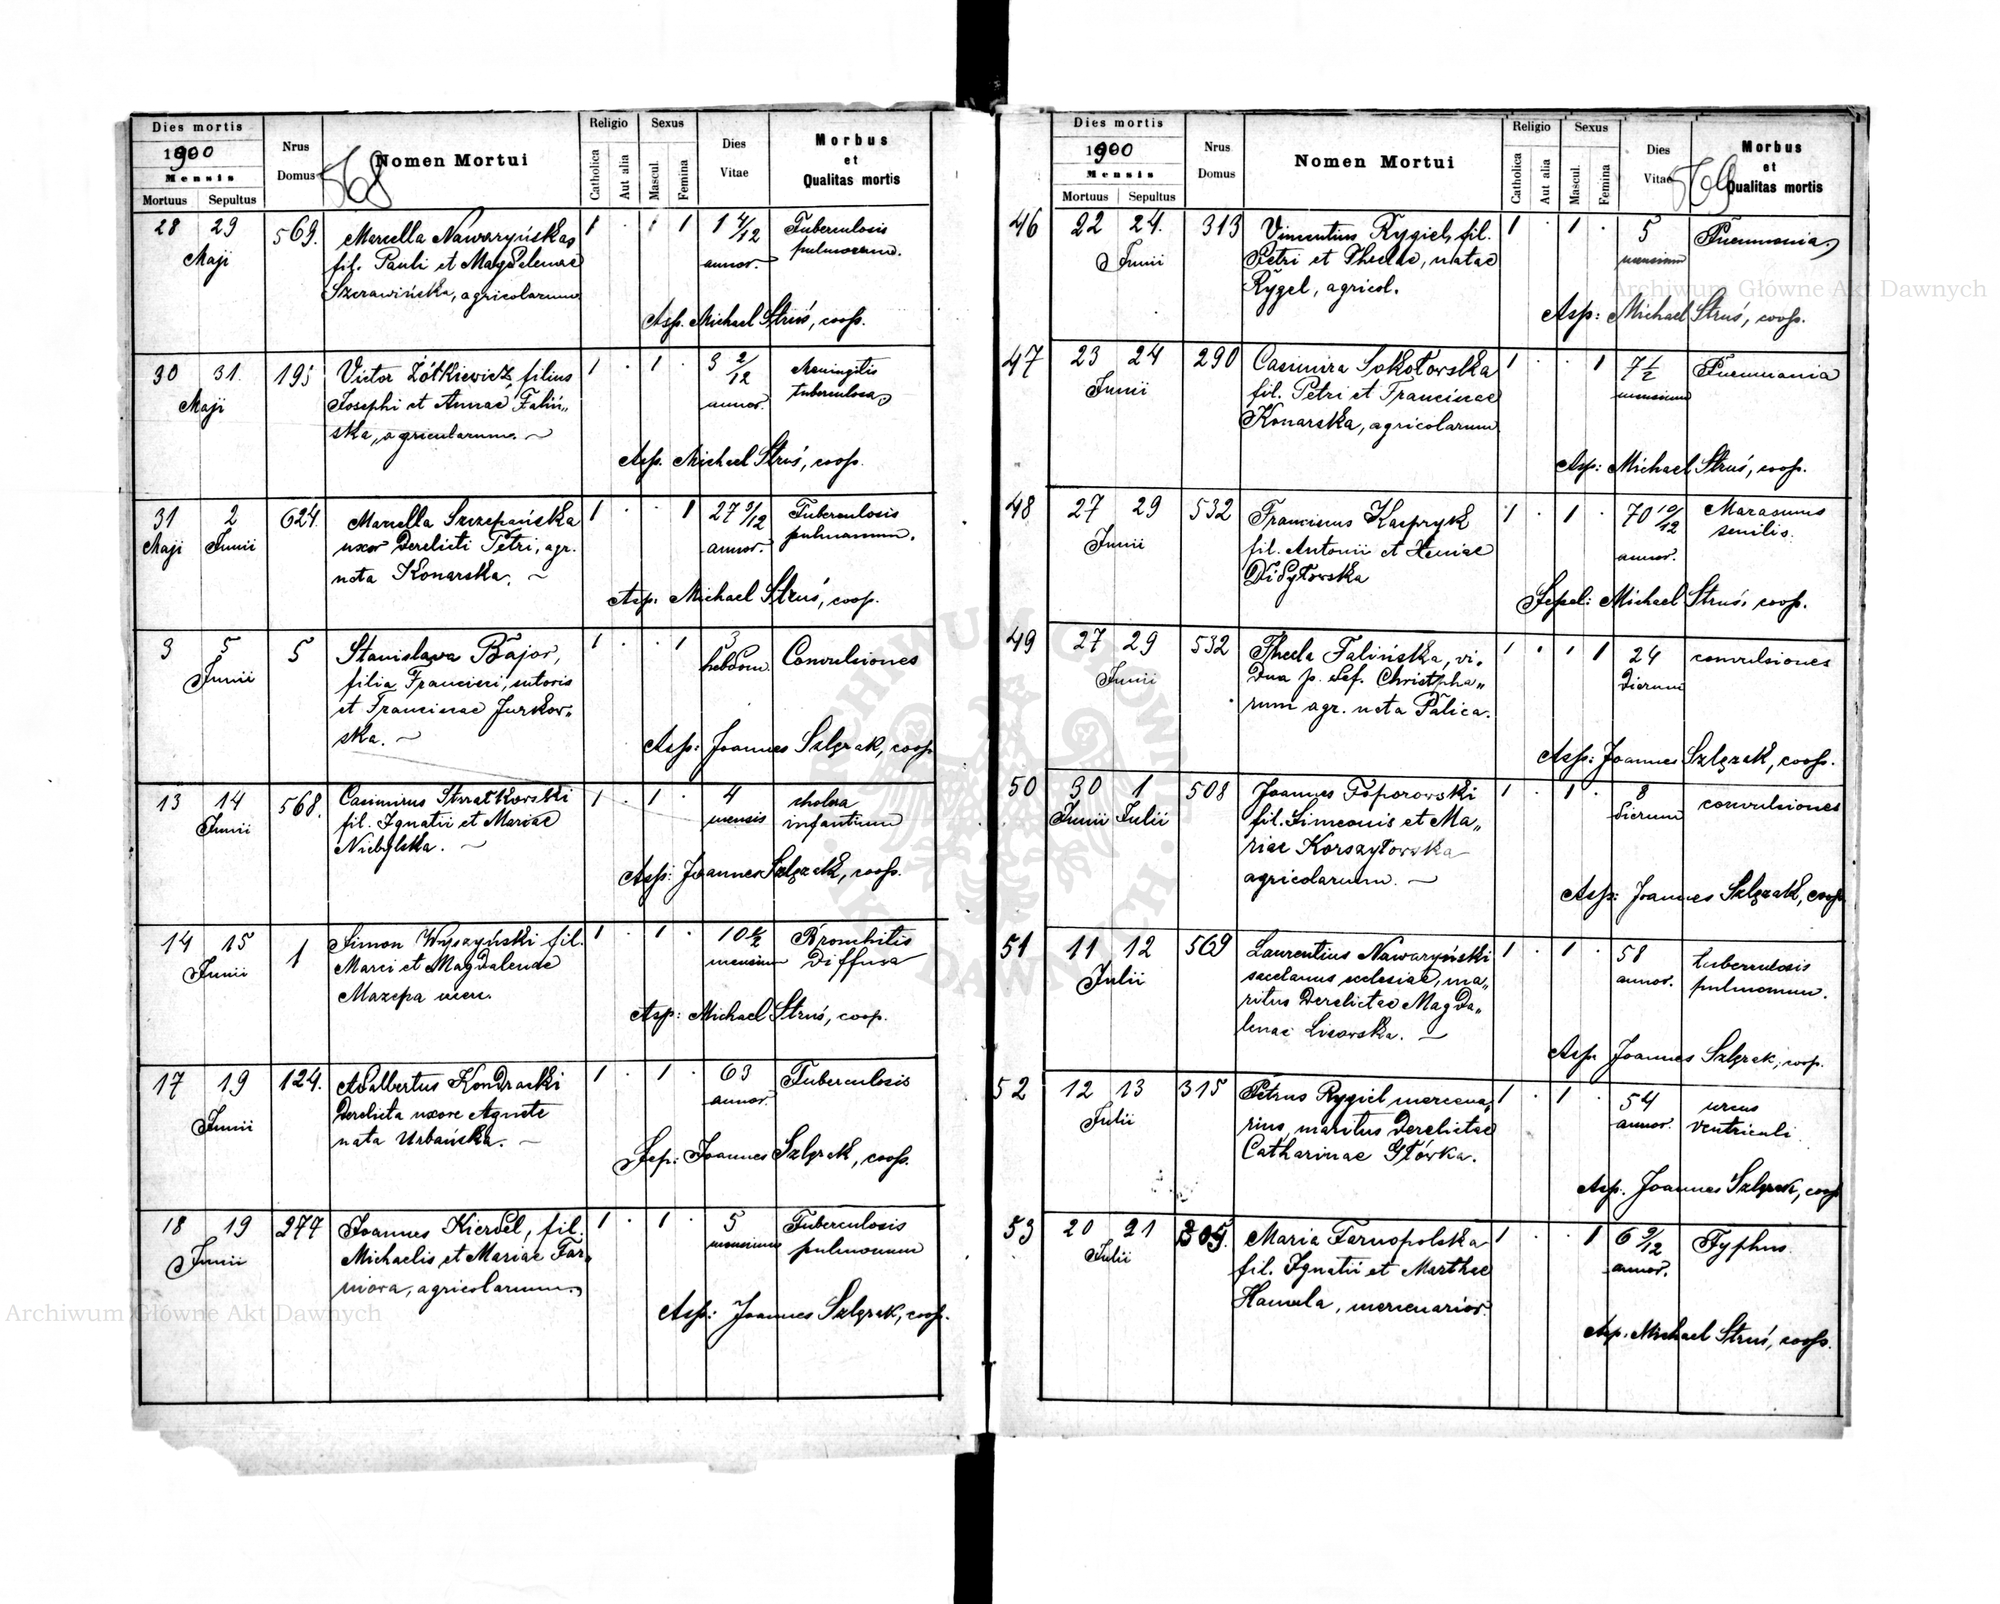 Dies mortis
1900
Mensis
Mortuus Sepultus
Nrus
Domus
568
Nomen Mortui
Religio
Catholica
Aut alia
Sexus
Mascul.
Femina
Dies
Vitae
Morbus
et
Qualitas mortis
28 29 569. Marcella Nawaryńska, 1 · 1 1 4/12 Tuberculosis
Maji fil. Pauli et Magdalenae annor. pulmonum.
Szerawińska, agricolarum
Asp. Michael Struś, coop.
30 31. 195 Victor Żółkiewicz, filius 1 · 1 · 3 2/12 Meningitis
Maji Josephi et Annae Faliń„ annor. tuberculosa
ska, agricolarum. ~
Asp. Michael Struś, coop.
31 2 624. Marcella Szczepańska 1 · · 1 27 9/12 Tuberculosis
Maji Junii uxor derelicti Petri, agr. annor. pulmonum.
nata Konarska. ~
Asp. Michael Struś, coop.
3 5 5 Stanislava Bajor, 1 · · 1 3 Convulsiones
Junii filia Francisci, sutoris hebdom.
et Franciscae Jurkow„
ska. ~
Asp: Joannes Szlęzak, coop.
13 14 568. Casimirus 1 · 1 · 4 cholera
Junii fil. Ignatii et Mariae mensis infantium
Niebylska. ~
Asp: Joannes Szlęzak, coop.
14 15 1 Simon Wyszyński fil. 1 · 1 · 10 1/2 Bronchitis
Junii Marci et Magdalenae mensium diffusa
Mazepa merc.
Asp: Michael Struś, coop.
17 19 124. Adalbertus Kondracki 1 · 1 · 63 Tuberculosis
Junii derelicta uxore Agnete annor.
nata Urbańska. ~
Sep: Joannes Szlęzak, coop.
18 19 277 Joannes Kierdel, fil. 1 · 1 · 5 Tuberculosis
Junii Michaelis et Mariae Tar„ mensium pulmonum
niowa, agricolarum.
Asp: Joannes Szlęzak, coop.
Dies mortis
1900
Mensis
Mortuus Sepultus
Nrus
Domus
Nomen Mortui
Religio
Catholica
Aut alia
Sexus
Mascul.
Femina
Dies
Vitae
569
Morbus
et
Qualitas mortis
46 22 24. 313 Vincentius Rygiel, fil. 1 · 1 · 5 Pneumonia
Junii Petri et Theclae, natae mensium
Rygel, agricol.
Asp: Michael Struś, coop.
47 23 24 290 Casimira Sokołowska 1 · · 1 7 1/2 Pneumonia
Junii fil. Petri et Franciscae mensium
Konarska, agricolarum
Asp: Michael Struś, coop.
48 27 29 532 Franciscus Kaspryk 1 · 1 · 70 10/12 Marasmus
Junii fil. Antonii et annor. senilis.
Didyłowska
Sepel: Michael Struś, coop.
49 27 29 532 Thecla Falińska, vi„ 1 · · 1 24 convulsiones
Junii dua p. def. Christpha„ dierum
rum agr. nata Palica.
Asp: Joannes Szlęzak, coop.
50 30 1 508 Joannes Toporowski 1 · 1 · 8 convulsiones
Junii Julii fil. Simeonis et Ma„ dierum
riae Korszyłowska
agricolarum. ~
Asp: Joannes Szlęzak, coop.
51 11 12 569 Laurentius Nawaryński 1 · 1 · 58 tuberculosis
Julii ecclesiae, ma„ annor. pulmonum.
ritus derelictae Magda„
lenae Lisowska. ~
Asp. Joannes Szlęzak, coop.
52 12 13 315 Petrus Rygiel mercena„ 1 · 1 · 54 ulcus
Julii rius, maritus derelictae annor. ventriculi
Catharinae Główka.
Asp. Joannes Szlęzak, coop
53 20 21 305. Maria Tarnopolska 1 · · 1 6 9/12 Typhus.
Julii fil. Ignatii et Marthae annor.
Hamula, mercenarior.
Asp. Michael Struś, coop.
Archiwum Główne Akt Dawnych
Archiwum Główne Akt Dawnych
ARCHIWUM GŁÓWNE AKT DAWNYCH